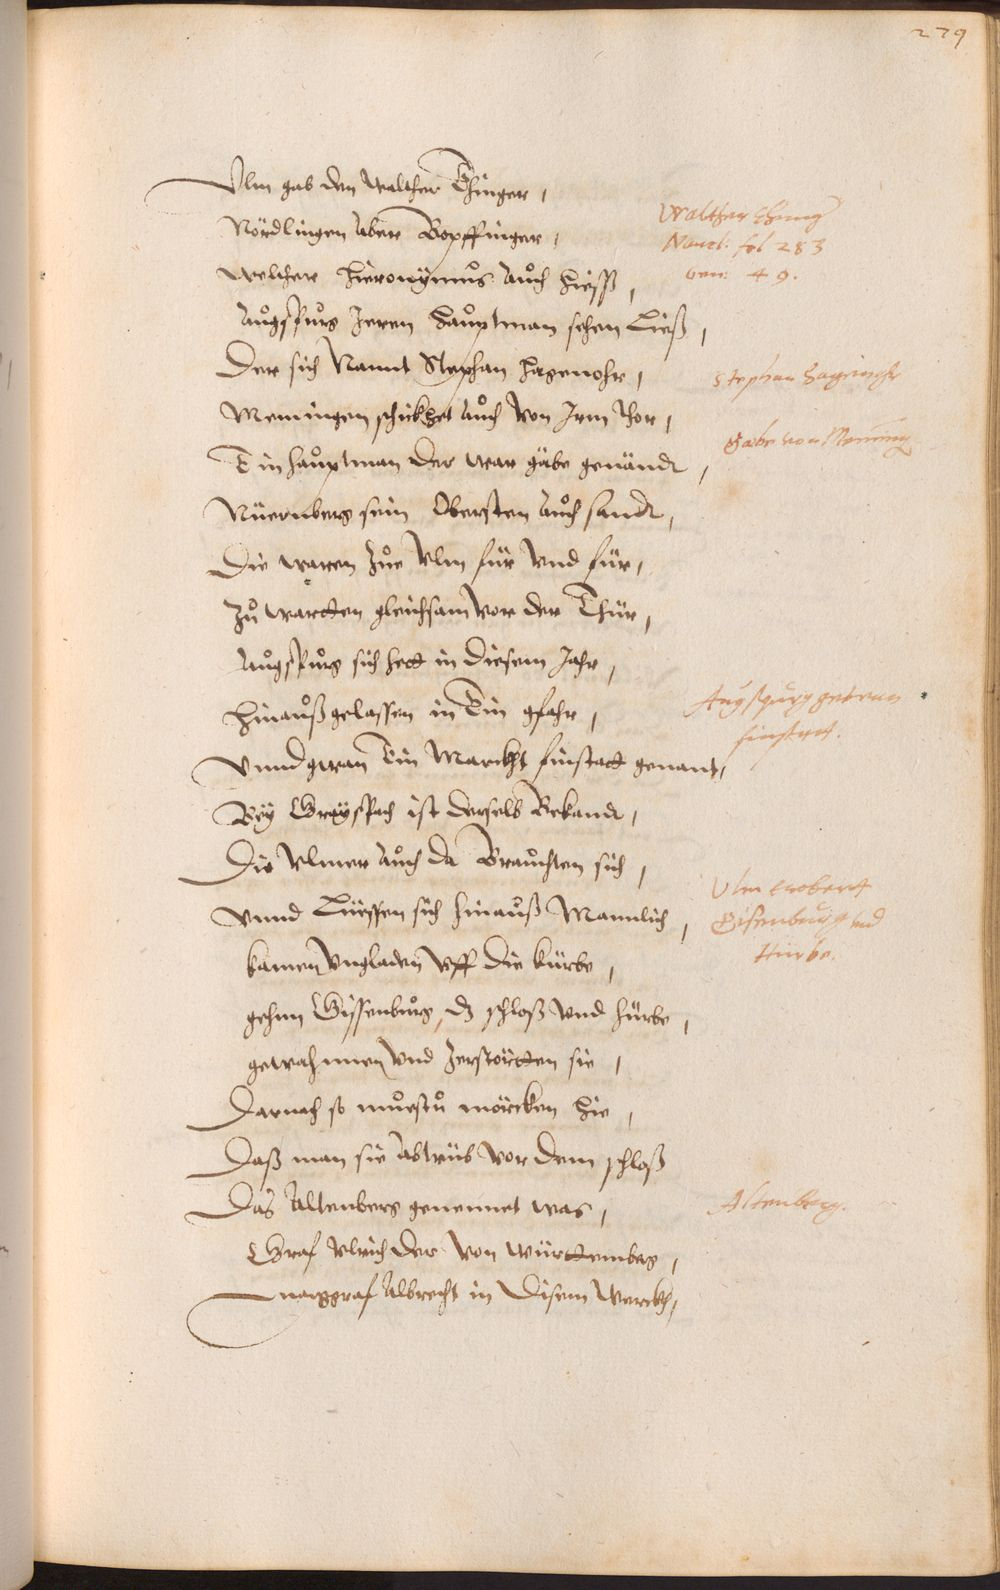 279
Ulm gab den Walther Ehinger,
Nördlingen Aber Bopffinger,
Welcher Hieronymus Auch hiess,
Augspurg Jeren Hauptman sehen Ließ,
Der sich Nannt Stephan Hagenohr,
Memingen schickhet Auch von Jrm Thor,
Ein Hauptman der war gäbe genandt,
Nüernberg sein Obersten Auch sandt,
Die waren Zue Ulm für Vnd für,
Zu wartten gleichsam vor der Thür,
Augspurg sich hett in diesem Jahr,
Hinauß gelassen in Ein gfahr,
Vnnd gwan Ein Marckht finstatt genant,
Bey Grayspach ist derselb Bekandt,
Die Vlmer Auch da Brauchten sich,
Vnnd Liessen sich hinauß Mannlich,
kamen Vngladen Vff die kürbe,
gehnn Gissenburg, dz schloß Vnd hürbe,
gewahnnen Vnd Zerstörtten sie,
Darnach so muestu mörcken hie,
Daß man sie Abtrüb vor dem schloß
Das Altenberg genennet was,
Graf Vlrich der Von Württemberg,
Marggraf Albrecht in disem Werckh,
Walther Ehing
Naucl: fol 283
gen: 49.
Stephan Hagenohr
Gäbe von Meming
Augspurg gewan
finstat.
Ulm erobert
Gisenburg vnd
Hürbe.
Altenberg.